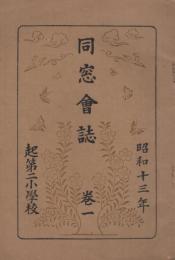 昭和十三年
同窓會誌 巻一
起第二小學校